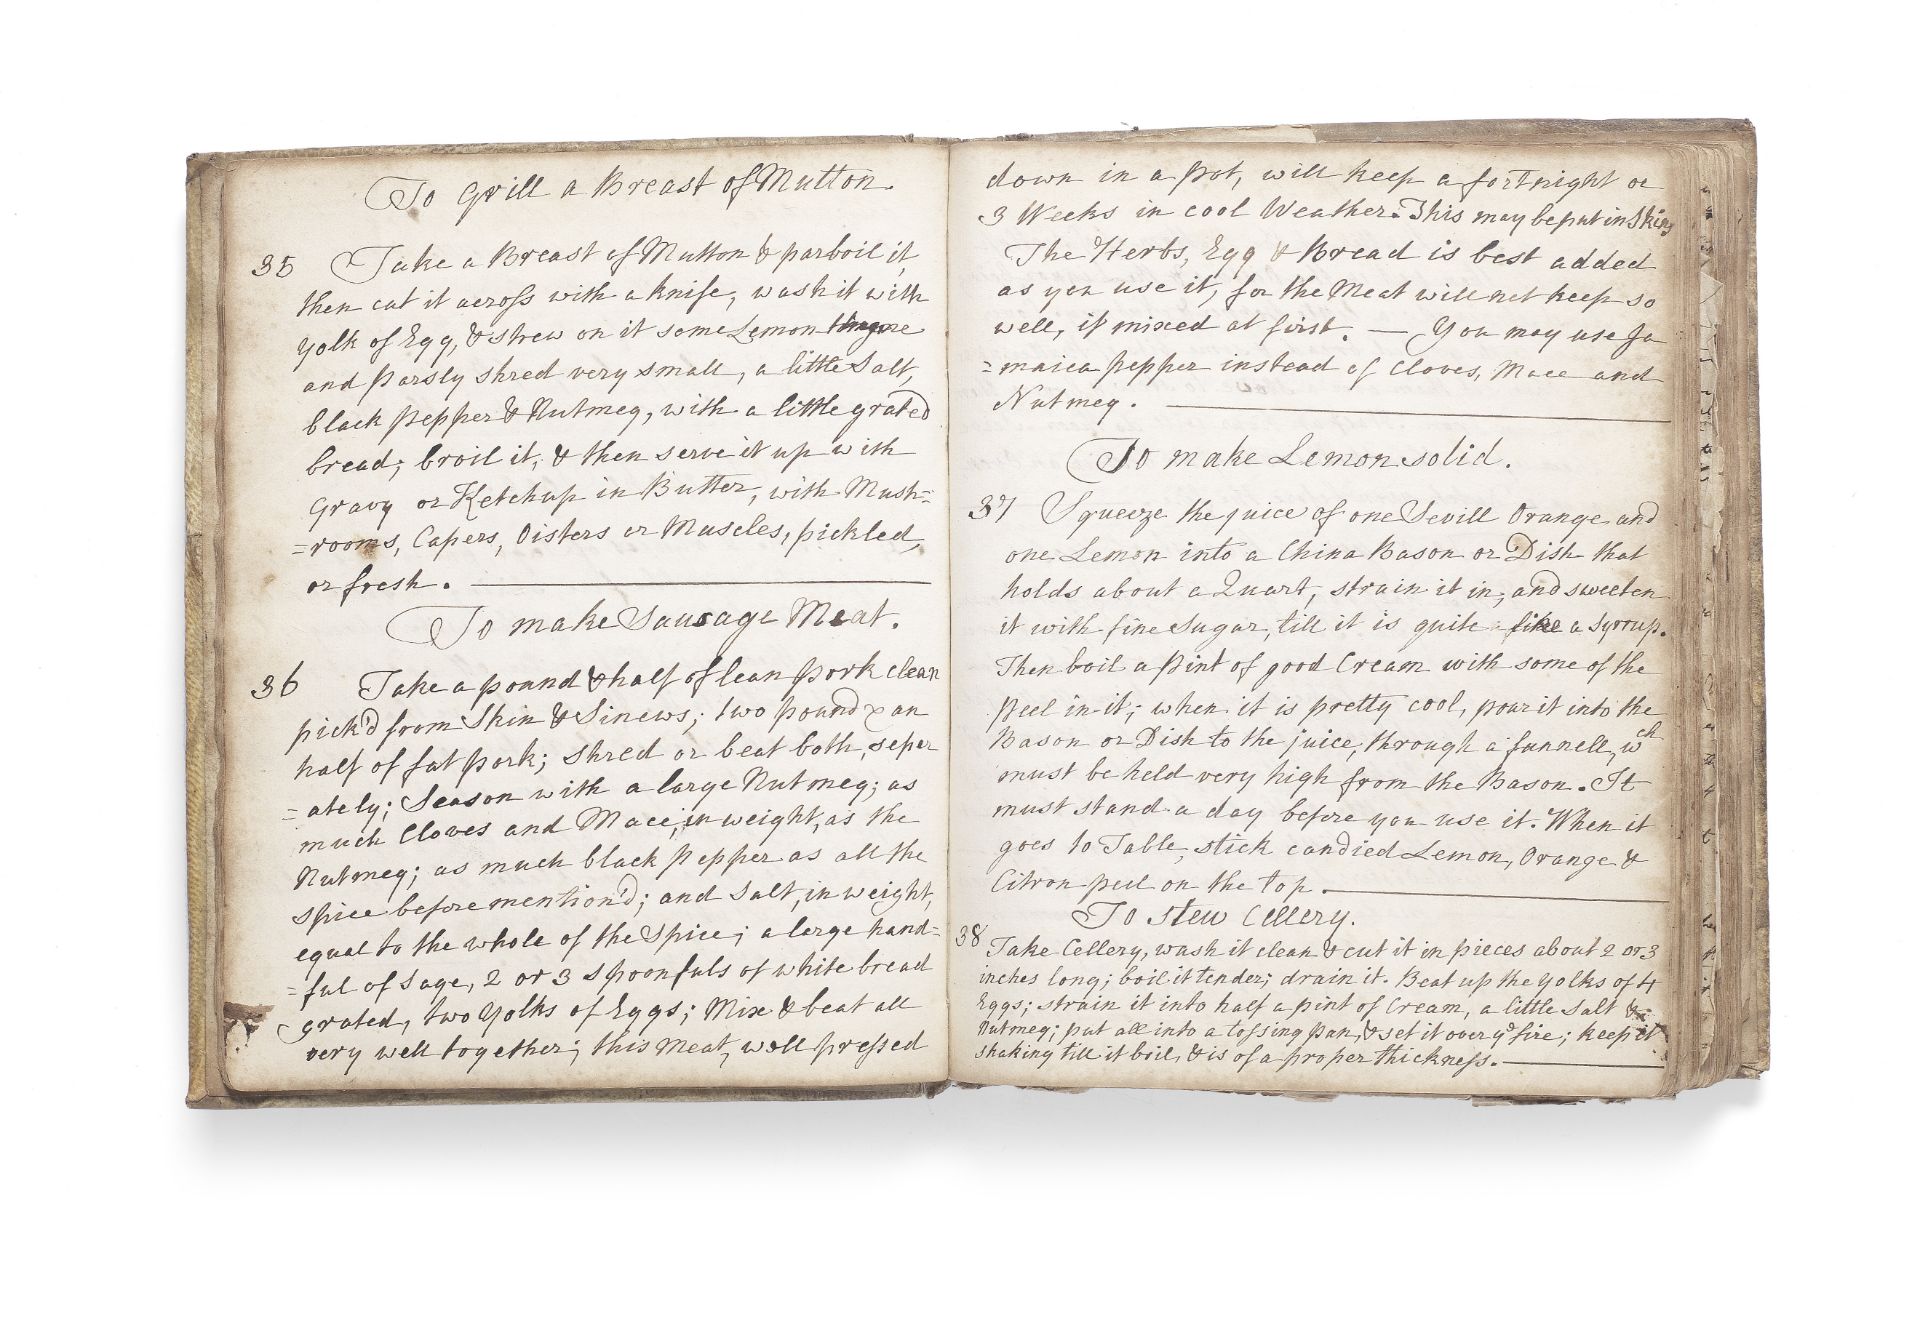 To Grill a Breast of Mutton.
35 Take a Breast of Mutton & parboil it,
then cut it across with a knife, wash it with
yolk of Egg, & strew on it some Lemon thyme
and parsly shred very small, a little Salt,
black pepper & Nutmeg, with a little grated
bread; broil it, & then serve it up with
Gravy or Ketchup in Butter, with Mush=
=rooms, Capers, Oisters or Muscles, pickled,
or fresh.
To make Sausage Meat.
36 Take a pound & half of lean pork clean
pick'd from Skin & Sinews; two pound & an
half of fat pork; shred or beat both, seper
=ately; Season with a large Nutmeg; as
much Cloves and Mace, in weight, as the
Nutmeg; as much black Pepper as all the
spice before mention'd; and Salt, in weight,
equal to the whole of the Spice; a large hand=
=ful of Sage, 2 or 3 spoonfuls of white bread
grated, two yolks of Eggs; Mix & beat all
very well together; this meat, well pressed
down in a pot, will keep a fortnight or
3 Weeks in cool Weather. This may be put in Skins
The Herbs, Egg & Bread is best added
as you use it, for the Meat will not keep so
well, if mixed at first. — You may use Ja
=maica pepper instead of Cloves, Mace and
Nutmeg.
To make Lemon solid.
37 Squeeze the juice of one Sevill Orange and
one Lemon into a China Bason or Dish that
holds about a Quart, strain it in, and sweeten
it with fine Sugar, till it is quite like a Syrrup.
Then boil a Pint of good Cream with some of the
peel in it; when it is pretty cool, pour it into the
Bason or Dish to the juice, through a funnell, wch
must be held very high from the Bason. It
must stand a day before you use it. When it
goes to Table, stick candied Lemon, Orange &
Citron peel on the top.
To stew Cellery.
38 Take Cellery, wash it clean & cut it in pieces about 2 or 3
inches long; boil it tender; drain it. Beat up the yolks of 4
Eggs; strain it into half a pint of Cream, a little Salt &
Nutmeg; put all into a tossing pan, & set it over ye fire; keep it
shaking till it boil, & is of a proper thickness.